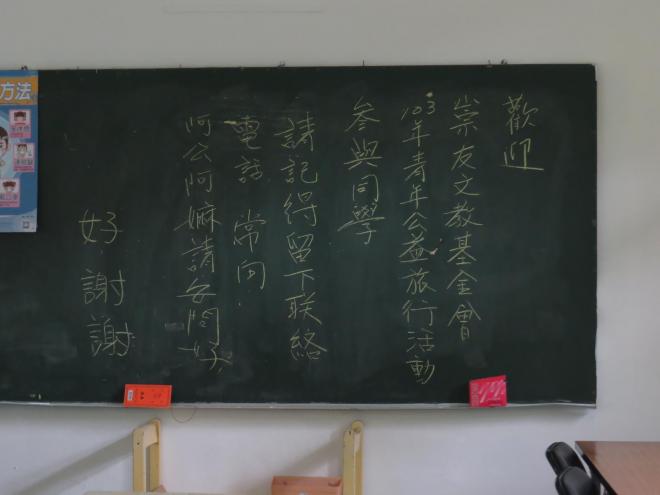 歡迎
崇友文教基金會
103年青年公益旅行活動
參與同學
請記得留下联絡
電話 常向
阿公阿嫲請安問好
好 謝謝
方法